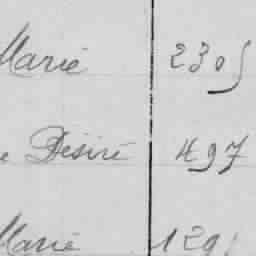 Marie 2305
e Désiré 497
Marie 1291